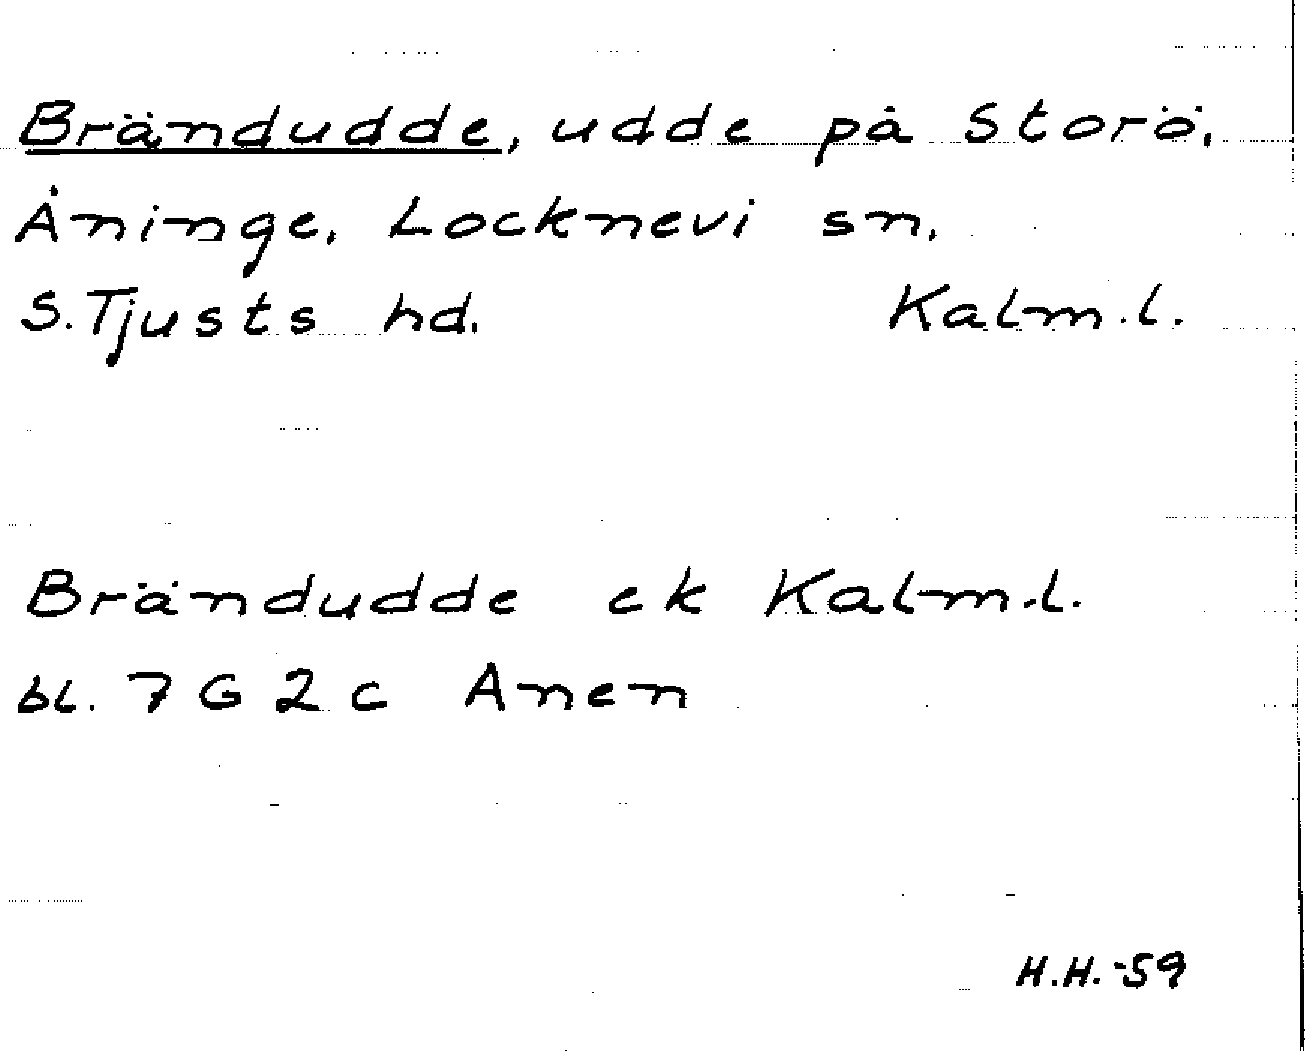 Brändudde, udde på Storö,
Åninge, Locknevi sn,
S. Tjusts hd. Kalm.l.
Brändudde ek Kalm.l.
bl. 7 G 2 c Anen
H.H.-59